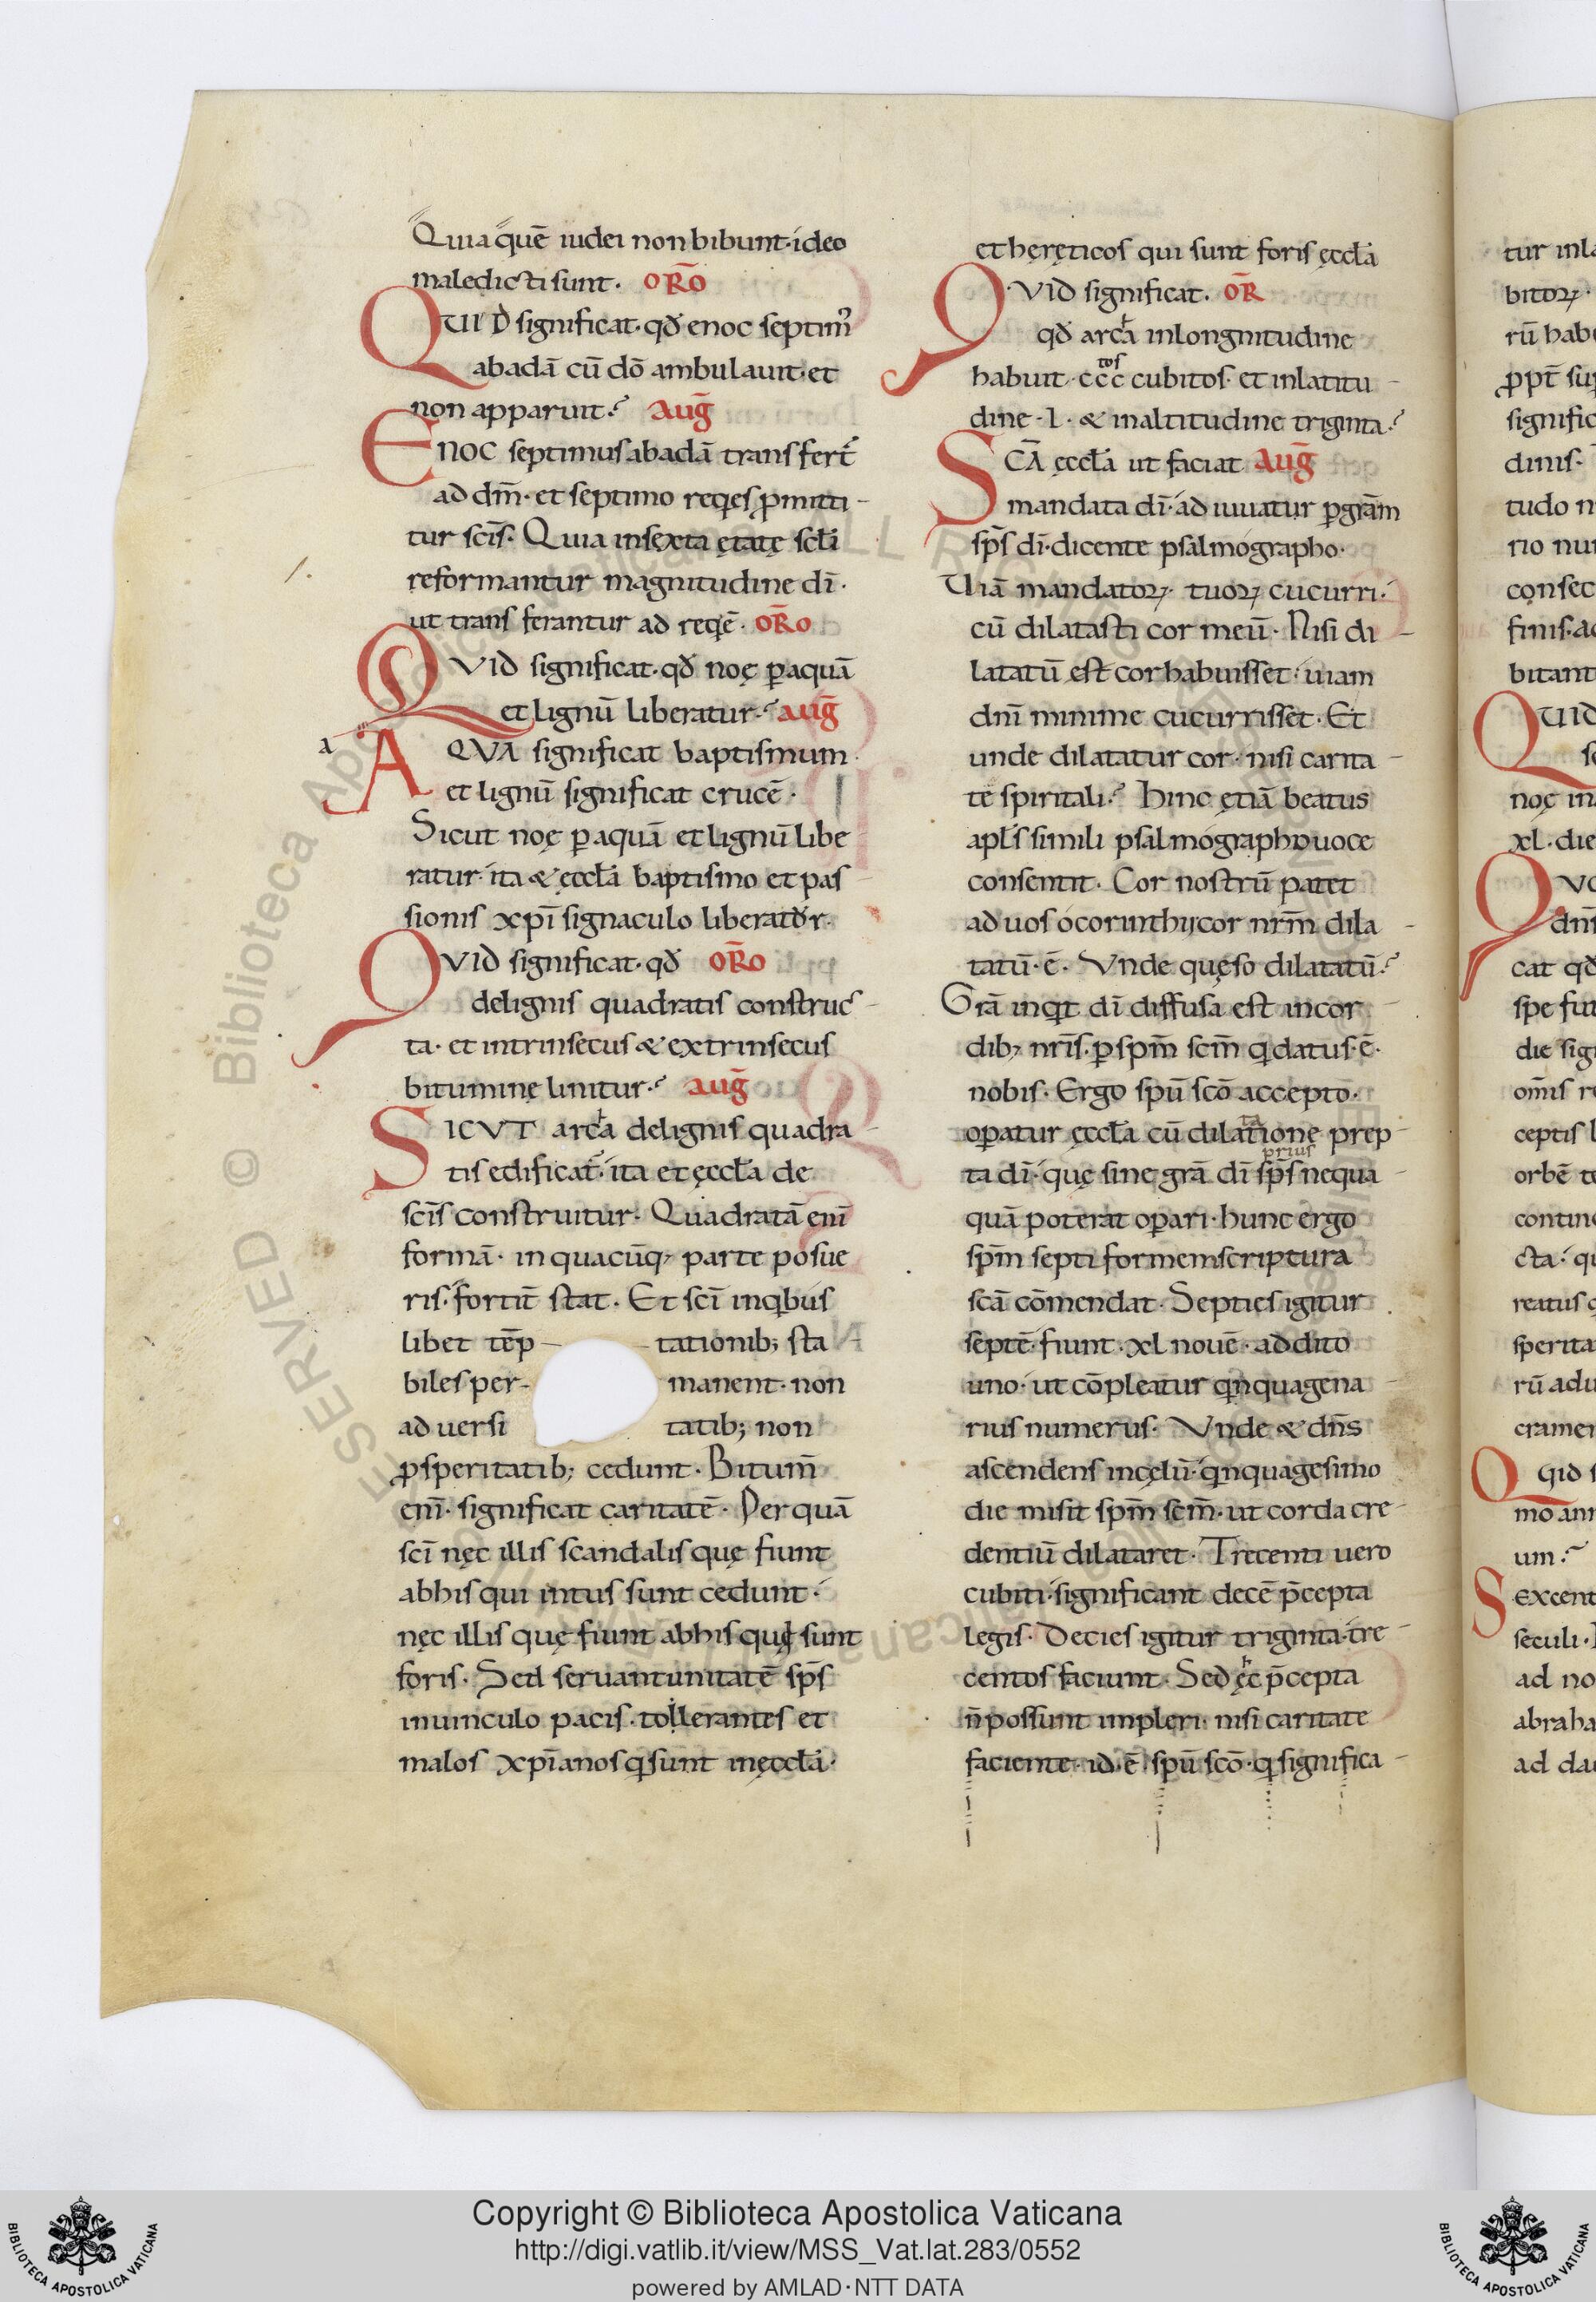 Quia quē iudei non bibunt· ideo
maledicti sunt· ORŌ
QUID significat· qđ enoc septim᷒
abadā cū dō ambulauit· et
non apparuit? AUḠ
ENOC septimus abadā transfert̄
ad dm̄· et septimo reqes ꝓmitti-
tur sc̄is· Quia insexta ętatę sc̄li
reformantur magnitudine dī·
ut trans ferantur ad reqē· ORŌ
QVID significat· qđ noę ꝑaquā
et lignū liberatur? AUḠ
a
AQVA significat baptismum
et lignū significat crucē·
Sicut noę ꝑ aquā et lignū libe
ratur· ita & ęcclā baptismo et pas
sionis xp̄i signaculo liberatur·
QVID significat· qđ ORŌ
delignis quadratis construc-
ta· et intrinsecus & extrinsecus
bituminę linitur? AUḠ
SICVT arca delignis quadra-
tis edificat̄· ita et ęcclā de
sc̄is construitur· Quadratā enī
formā· in quacūq; parte posue
ris· fortit̄ stat· Et sc̄i inqbus
libet tēp- tationib; sta
biles per- manent· non
ad uersi tatib; non
ꝓsperitatib; cedunt· Bitum̄
enī· significat caritatē· Per quā
sc̄i nęc illis scandalis quę fiunt
abhis qui intus sunt cedunt·
nęc illis quę fiunt abhis qui sunt
foris· Sed seruant unitatē sp̄s
inuinculo pacis· tollerantes et
malos xp̄ianos q sunt inęcclā·
et hęręticos qui sunt foris ęcclā
QVID significat· OR̄
qđ arca inlongnitudine
habuit· ccc tos cubitos· et inlatitu-
dine· l· & inaltitudine triginta?
SCĀ ęcclā ut faciat AUḠ
mandata dī· ad iuuatur ꝑgrām
sp̄s dī· dicente psalmographo·
Uiā mandatoꝝ tuoꝝ cucurri·
cū dilatasti cor meū· Nisi di-
latatū est cor habuisset· uiam
dnī minime cucurrisset· Et
unde dilatatur cor· nisi carita-
te spiritali? Hinc ętiā beatus
apl̄s simili psalmographo uoce
consentit· Cor nostrū patet
ad uos o corinthij cor nrm̄ dila-
tatū· ē· Vnde quęso dilatatū?
Grā inqt dī diffusa est incor-
dib; nrīs· ꝑ spm̄ scm̄ q datus· ē·
nobis· Ergo spū scō accepto·
oꝑatur ęcclā cū dilatione prep-
prius
ta dī· quę sine grā dī sp̄s nequa-
quā poterat oꝑari· hunc ergo
spm̄ septi formem scriptura
scā cōmendat· Septies igitur
septē fiunt· xl nouē· addito
uno· ut cōpleatur qnquagena
rius numerus· Vnde & dn̄s
ascendens incęlū· qnquagesimo
die misit spm̄ scm̄· ut corda cre-
dentiū dilataret· Trecenti uero
cubiti· significant decē p̄cepta
legis· Decies igitur triginta· tre-
centos faciunt· Sed hęc p̄cepta
n̄ possunt impleri· nisi caritate
faciente· id· ē· spū scō· q significa-
Copyright © Biblioteca Apostolica Vaticana
http://digi.vatlib.it/view/MSS_Vat.lat.283/0552
powered by AMLAD·NTT DATA
BIBLIOTECA APOSTOLICA VATICANA
BIBLIOTECA APOSTOLICA VATICANA